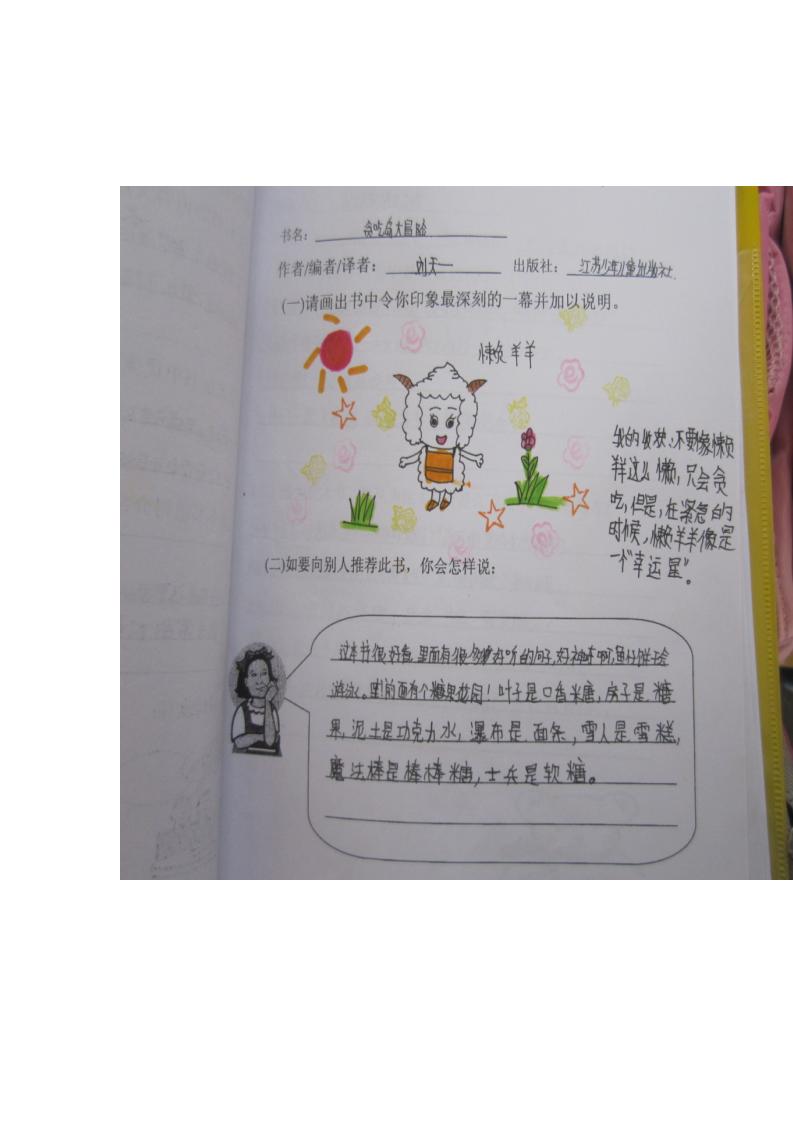 书名：贪吃岛大冒险
作者/编者/译者：刘天一 出版社：江苏少年儿童出版社
(一)请画出书中令你印象最深刻的一幕并加以说明。
懒羊羊
我的收获：不要像懒
羊这么懒，只会贪
吃，但是，在紧急的
时候，懒羊羊像是
一个"幸运星"。
(二)如要向别人推荐此书，你会怎样说：
这本书很好看，里面有很多好听的句子，好神奇啊，鱼仔饼干会
游泳。里前面有个糖果花园！叶子是口香糖，房子是糖
果，泥土是巧克力水，瀑布是面条，雪人是雪糕，
魔法棒是棒棒糖，士兵是软糖。